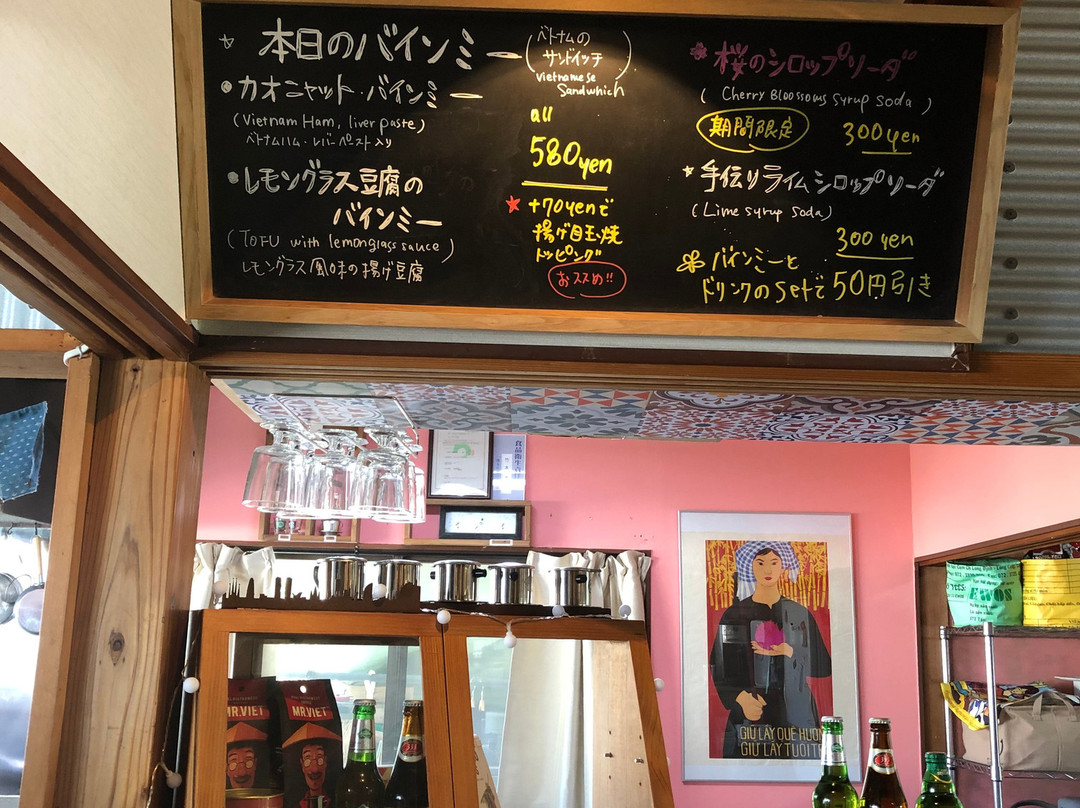 ☆ 本日のバインミー
(ベトナムの
サンドイッチ
Vietnamese
Sandwhich)
・カオニャット・バインミー
(Vietnam Ham, liver paste)
ベトナムハム・レバーペースト入り
・レモングラス豆腐の
バインミー
(TOFU with lemongrass sauce)
レモングラス風味の揚げ豆腐
all
580yen
★+70yenで
揚げ目玉焼
トッピング
おススメ!!
桜のシロップソーダ
(Cherry Bloossoms syrup soda)
期間限定 300yen
★手伝りライムシロップソーダ
(Lime syrup soda)
300yen
バインミーと
ドリンクのsetで50円引き
MR.VIET
MR.VIET
333
GIỮ LẤY QUÊ HƯƠ
GIỮ LẤY TUỔI T
EWOS